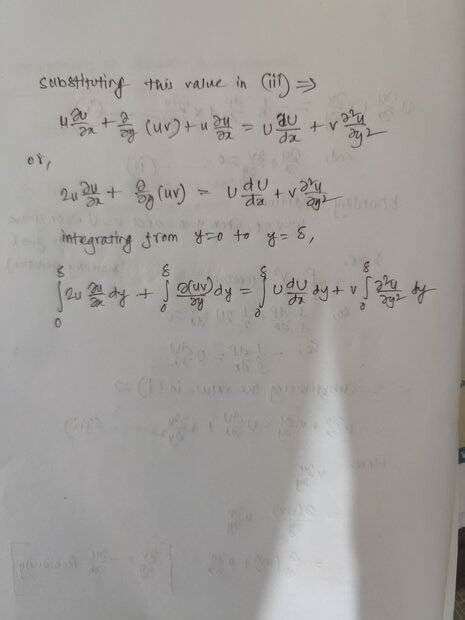 substituting this value in (iii) ⇒
u ∂u/∂x + ∂/∂y (uv) + u ∂u/∂x = U dU/dx + ν ∂²u/∂y²
or,
2u ∂u/∂x + ∂/∂y (uv) = U dU/dx + ν ∂²u/∂y²
integrating from y=0 to y=δ,
∫₀^δ 2u ∂u/∂x dy + ∫₀^δ ∂(uv)/∂y dy = ∫₀^δ U dU/dx dy + ν ∫₀^δ ∂²u/∂y² dy